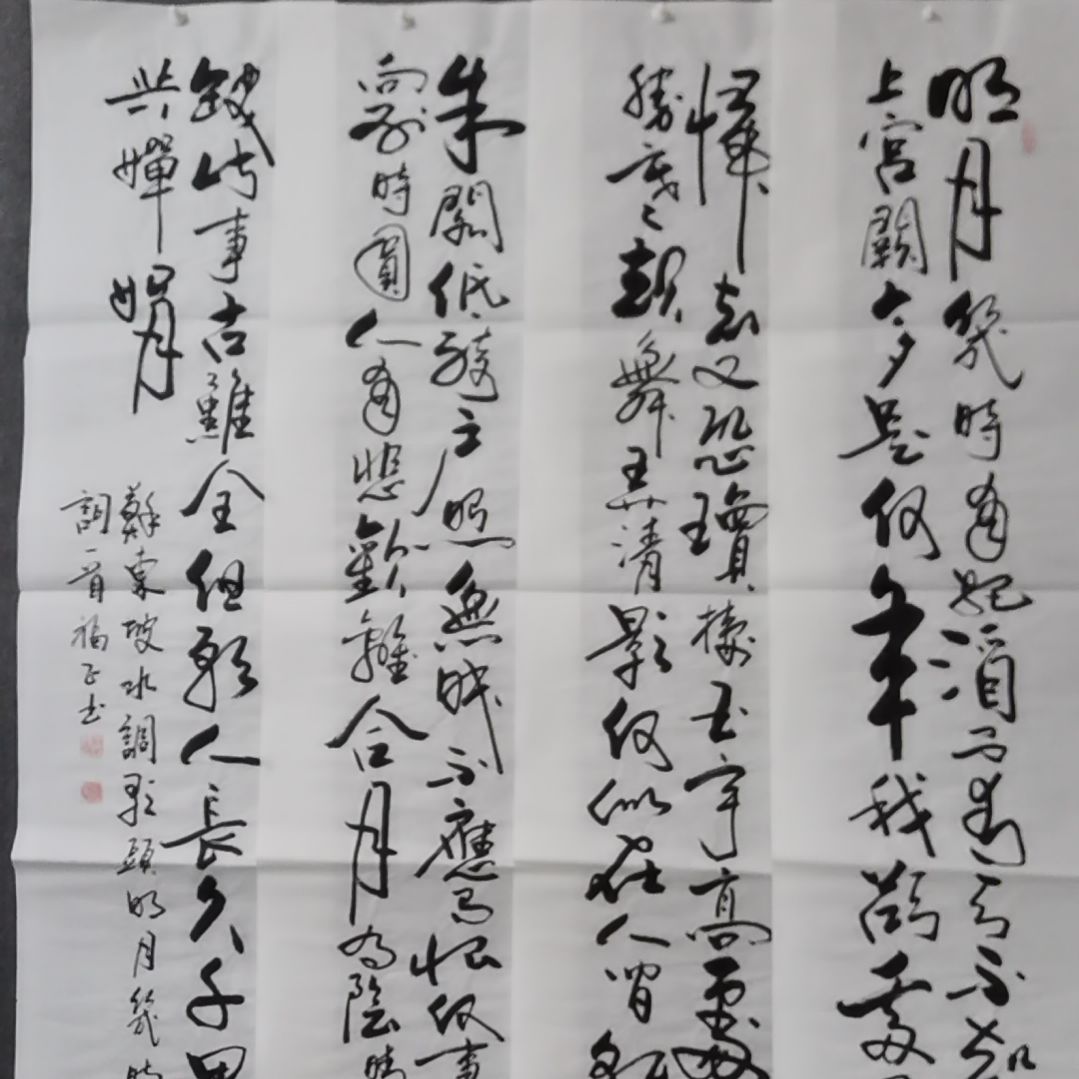 明月幾時有把酒问青天不知
上宮闕今夕是何年我欲乘
歸去又恐瓊樓玉宇高處
勝寒起舞弄清影何似在人間
朱閣低綺戶照無眠不應有恨何事
向别時圓人有悲歡離合月有陰晴
缺此事古難全但願人長久千里
共嬋娟
蘇東坡水調歌頭明月幾時
詞一首福正书